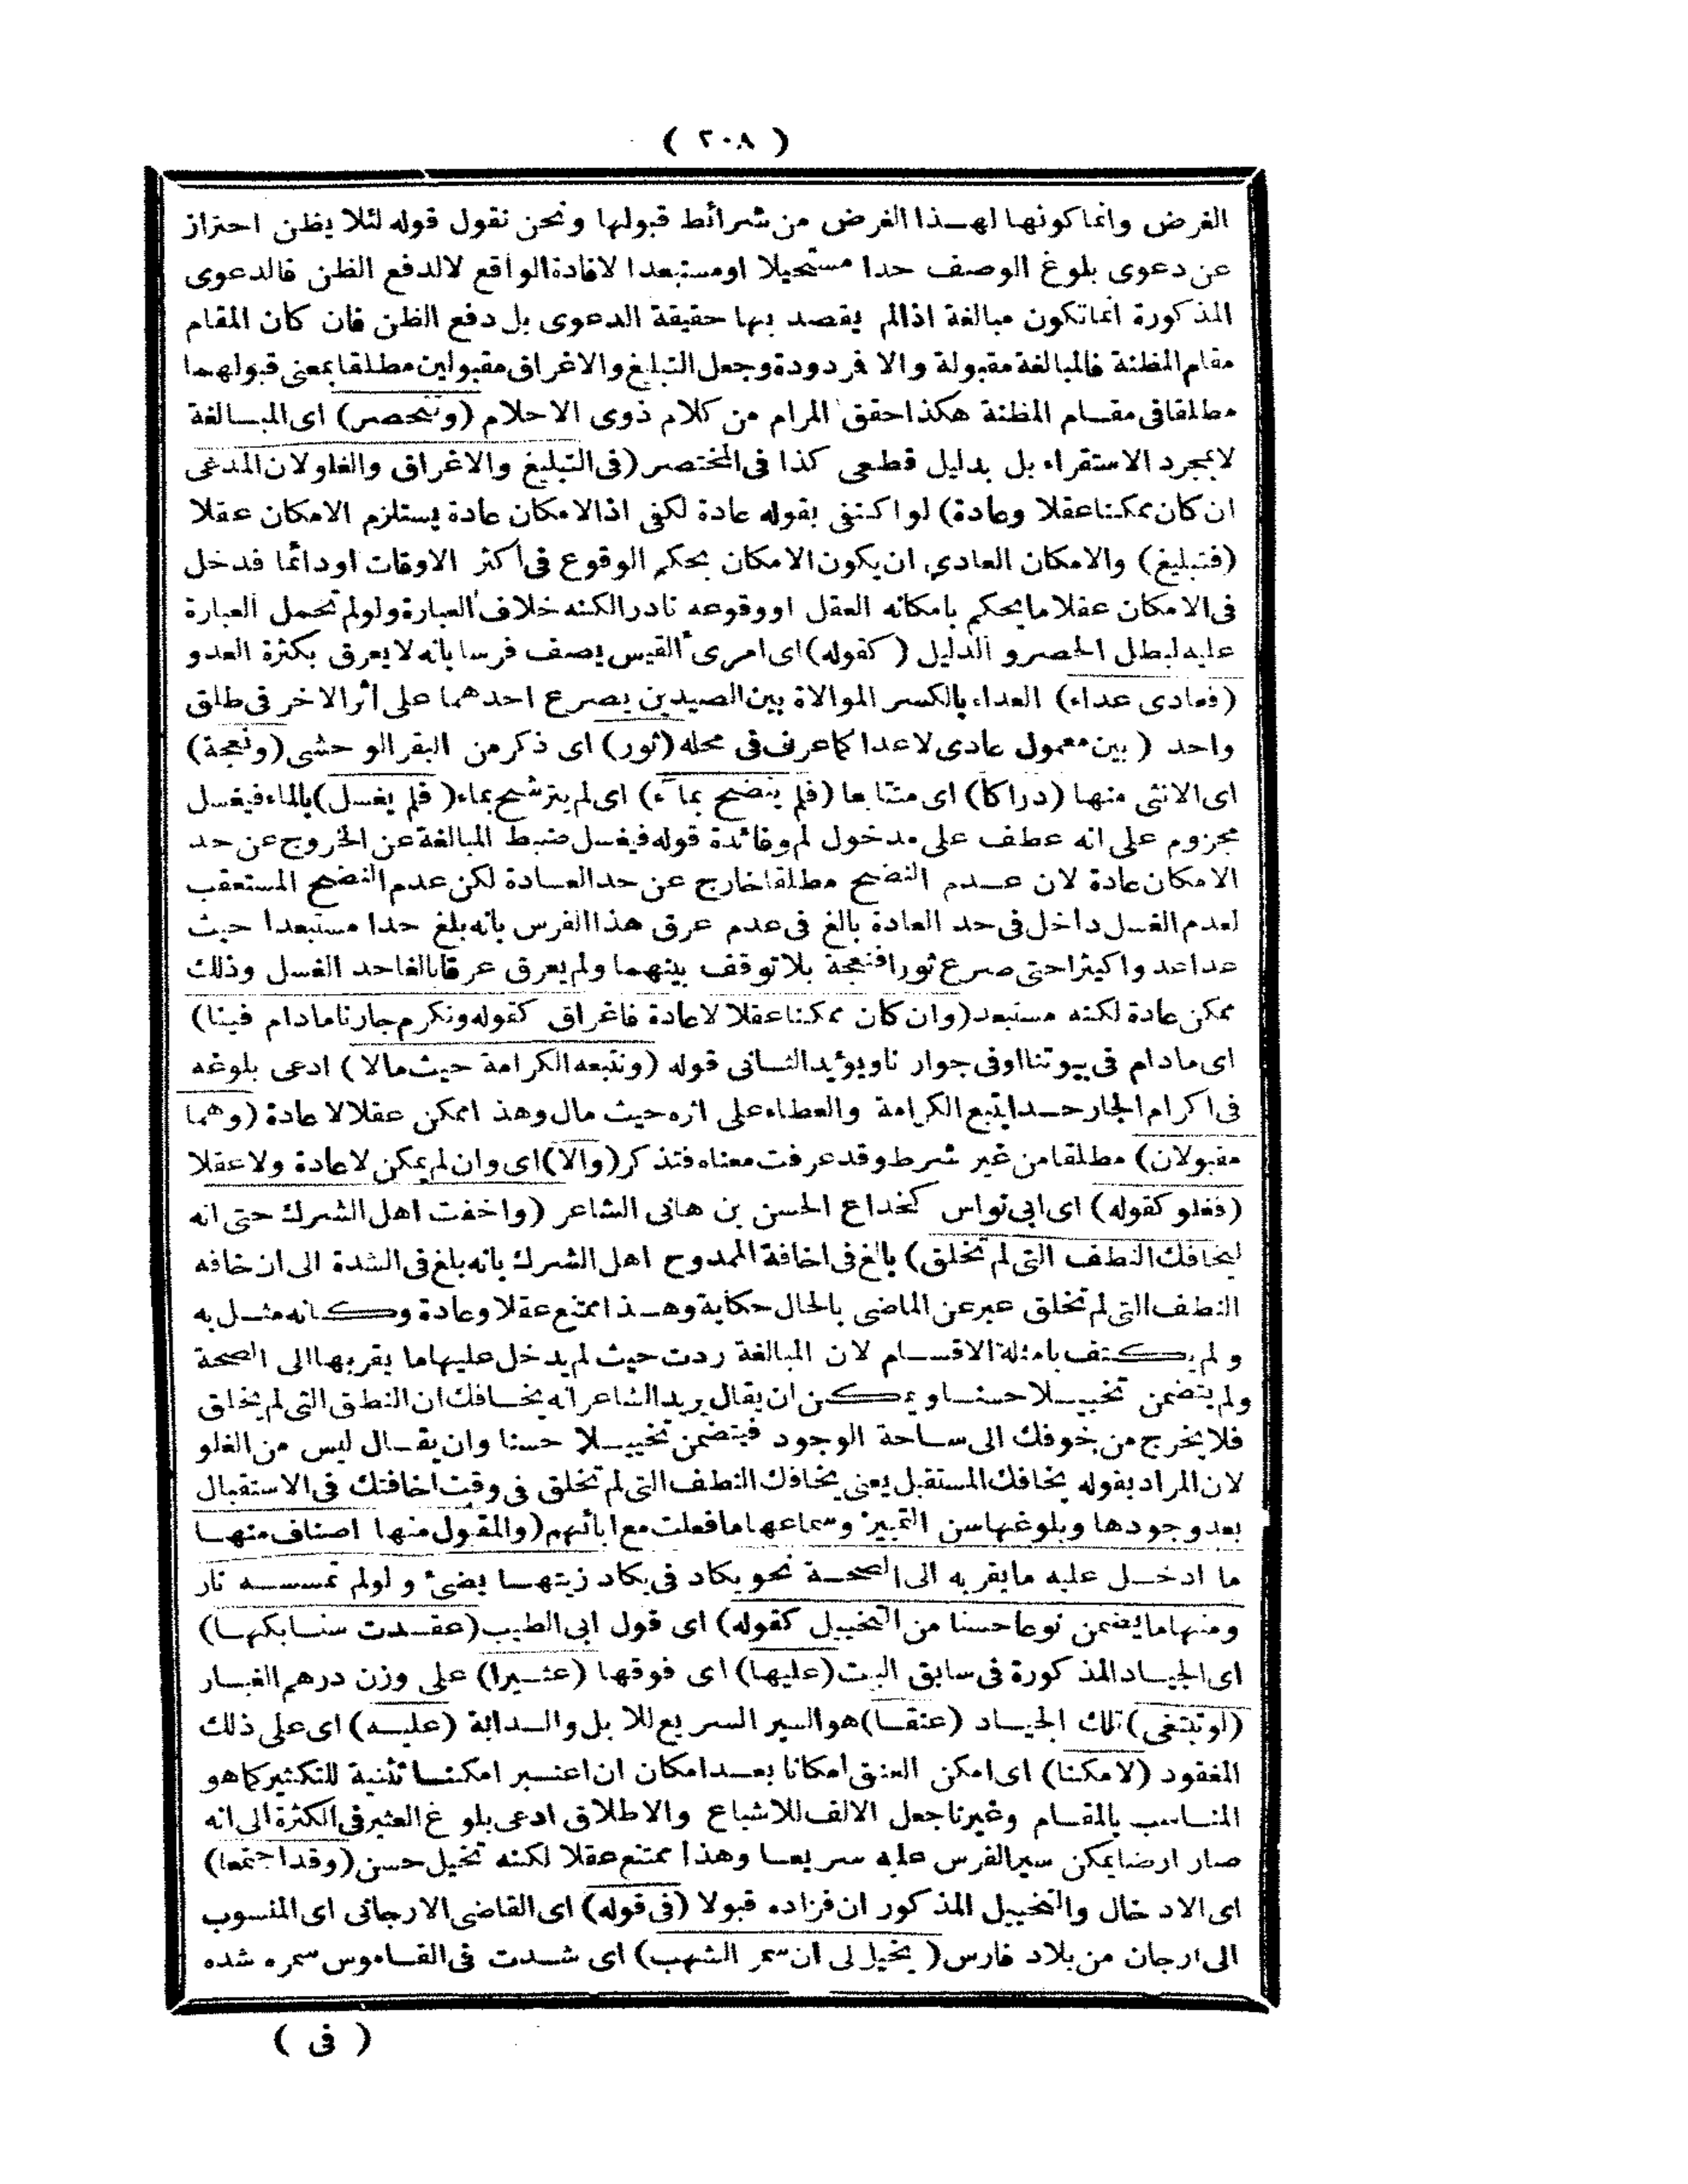 ( ٢٠٨ )
الغرض وانما كونها لهذا الغرض من شرائط قبولها ونحن نقول قوله لئلا يظن احتراز
عن دعوى بلوغ الوصف حدا مستحيلا اومستبعدا لافادة الواقع لالدفع الظن فالدعوى
المذكورة انما تكون مبالغة اذا لم يقصد بها حقيقة الدعوى بل دفع الظن فان كان المقام
مقام المظنة فالمبالغة مقبولة والا فردودة وجعل التبليغ والاغراق مقبولين مطلقا بمعنى قبولهما
مطلقا فى مقام المظنة هكذا حقق المرام من كلام ذوى الاحلام (وتنحصر) اى المبالغة
لا بمجرد الاستقراء بل بدليل قطعى كذا فى المختصر (فى التبليغ والاغراق والغلو لان المدعى
ان كان ممكنا عقلا وعادة) لو اكتفى بقوله عادة لكفى اذ الامكان عادة يستلزم الامكان عقلا
(فتبليغ) والامكان العادى ان يكون الامكان بحكم الوقوع فى اكثر الاوقات اودائما فدخل
فى الامكان عقلا ما يحكم بامكانه العقل او وقوعه نادرا لكنه خلاف العبارة ولولم تحمل العبارة
عليه لبطل الحصر و الدليل (كقوله) اى امرئ القيس يصف فرسا بانه لا يعرق بكثرة العدو
(فعادى عداء) العداء بالكسر الموالاة بين الصيدين يصرع احدهما على اثر الاخر فى طلق
واحد (بين معمول عادى لاعدا كما عرف فى محله (ثور) اى ذكر من البقر الوحشى (ونعجة)
اى الانثى منها (دراكا) اى متتابعا (فلم ينضح بماء) اى لم يترشح بماء (فلم يغسل) بالماء فيغسل
مجزوم على انه عطف على مدخول لم وفائدة قوله فيغسل ضبط المبالغة عن الخروج عن حد
الامكان عادة لان عدم النضح مطلقا خارج عن حد العادة لكن عدم النضح المستعقب
لعدم الغسل داخل فى حد العادة بالغ فى عدم عرق هذا الفرس بانه بلغ حدا مستبعدا حيث
عدا عدوا كثيرا حتى صرع ثورا فنعجة بلا توقف بينهما ولم يعرق عرقا بالغا حد الغسل وذلك
ممكن عادة لكنه مستبعد (وان كان ممكنا عقلا لا عادة فاغراق كقوله ونكرم جارنا ما دام فينا)
اى ما دام فى بيوتنا اوفى جوارنا ويؤيد الثانى قوله (ونتبعه الكرامة حيث مالا) ادعى بلوغه
فى اكرام الجار حدا يتبع الكرامة والعطاء على اثره حيث مال وهذ اممكن عقلا لا عادة (وهما
مقبولان) مطلقا من غير شرط وقد عرفت معناه فتذكر (والا) اى وان لم يمكن لاعادة ولا عقلا
(فغلو كقوله) اى ابى نواس كخداع الحسن بن هانى الشاعر (واخفت اهل الشرك حتى انه
ليخافك النطف التى لم تخلق) بالغ فى اخافة الممدوح اهل الشرك بانه بلغ فى الشدة الى ان خافه
النطف التى لم تخلق عبر عن الماضى بالحال حكاية وهذا ممتنع عقلا وعادة وكانه مثل به
ولم يكتف بامثلة الاقسام لان المبالغة ردت حيث لم يدخل عليها ما يقربها الى الصحة
ولم يتضمن تخييلا حسنا ويمكن ان يقال يريد الشاعر انه يخافك ان النطق التى لم يخلق
فلا يخرج من خوفك الى ساحة الوجود فيتضمن تخييلا حسنا وان يقال ليس من الغلو
لان المراد بقوله يخافك المستقبل يعنى يخافك النطف التى لم تخلق فى وقت اخافتك فى الاستقبال
بعد وجودها وبلوغها سن التمييز وسماعها ما فعلت مع ابائهم (والمقبول منها اصناف منها
ما ادخل عليه ما يقربه الى الصحة نحو يكاد فى يكاد زيتها يضئ ولولم تمسسه نار
ومنها ما يضمن نوعا حسنا من التخييل كقوله) اى قول ابى الطيب (عقدت سنابكها)
اى الجياد المذكورة فى سابق البيت (عليها) اى فوقها (عثيرا) على وزن درهم الغبار
(لو تبتغى) تلك الجياد (عنقا) هو السير السريع للابل والدابة (عليه) اى على ذلك
المعقود (لامكنا) اى امكن العنق امكانا بعد امكان ان اعتبر امكنا تثنية للتكثير كما هو
المناسب بالمقام وغيرنا جعل الالف للاشباع والاطلاق ادعى بلوغ العثير فى الكثرة الى انه
صار ارضا يمكن سير الفرس عليه سريعا وهذا ممتنع عقلا لكنه تخيل حسن (وقد اجتمعا)
اى الادخال والتخييل المذكور ان فزاده قبولا (فى قوله) اى القاضى الارجانى اى المنسوب
الى ارجان من بلاد فارس (يخيل لى ان سمر الشهب) اى شدت فى القاموس سمره شده
( فى )